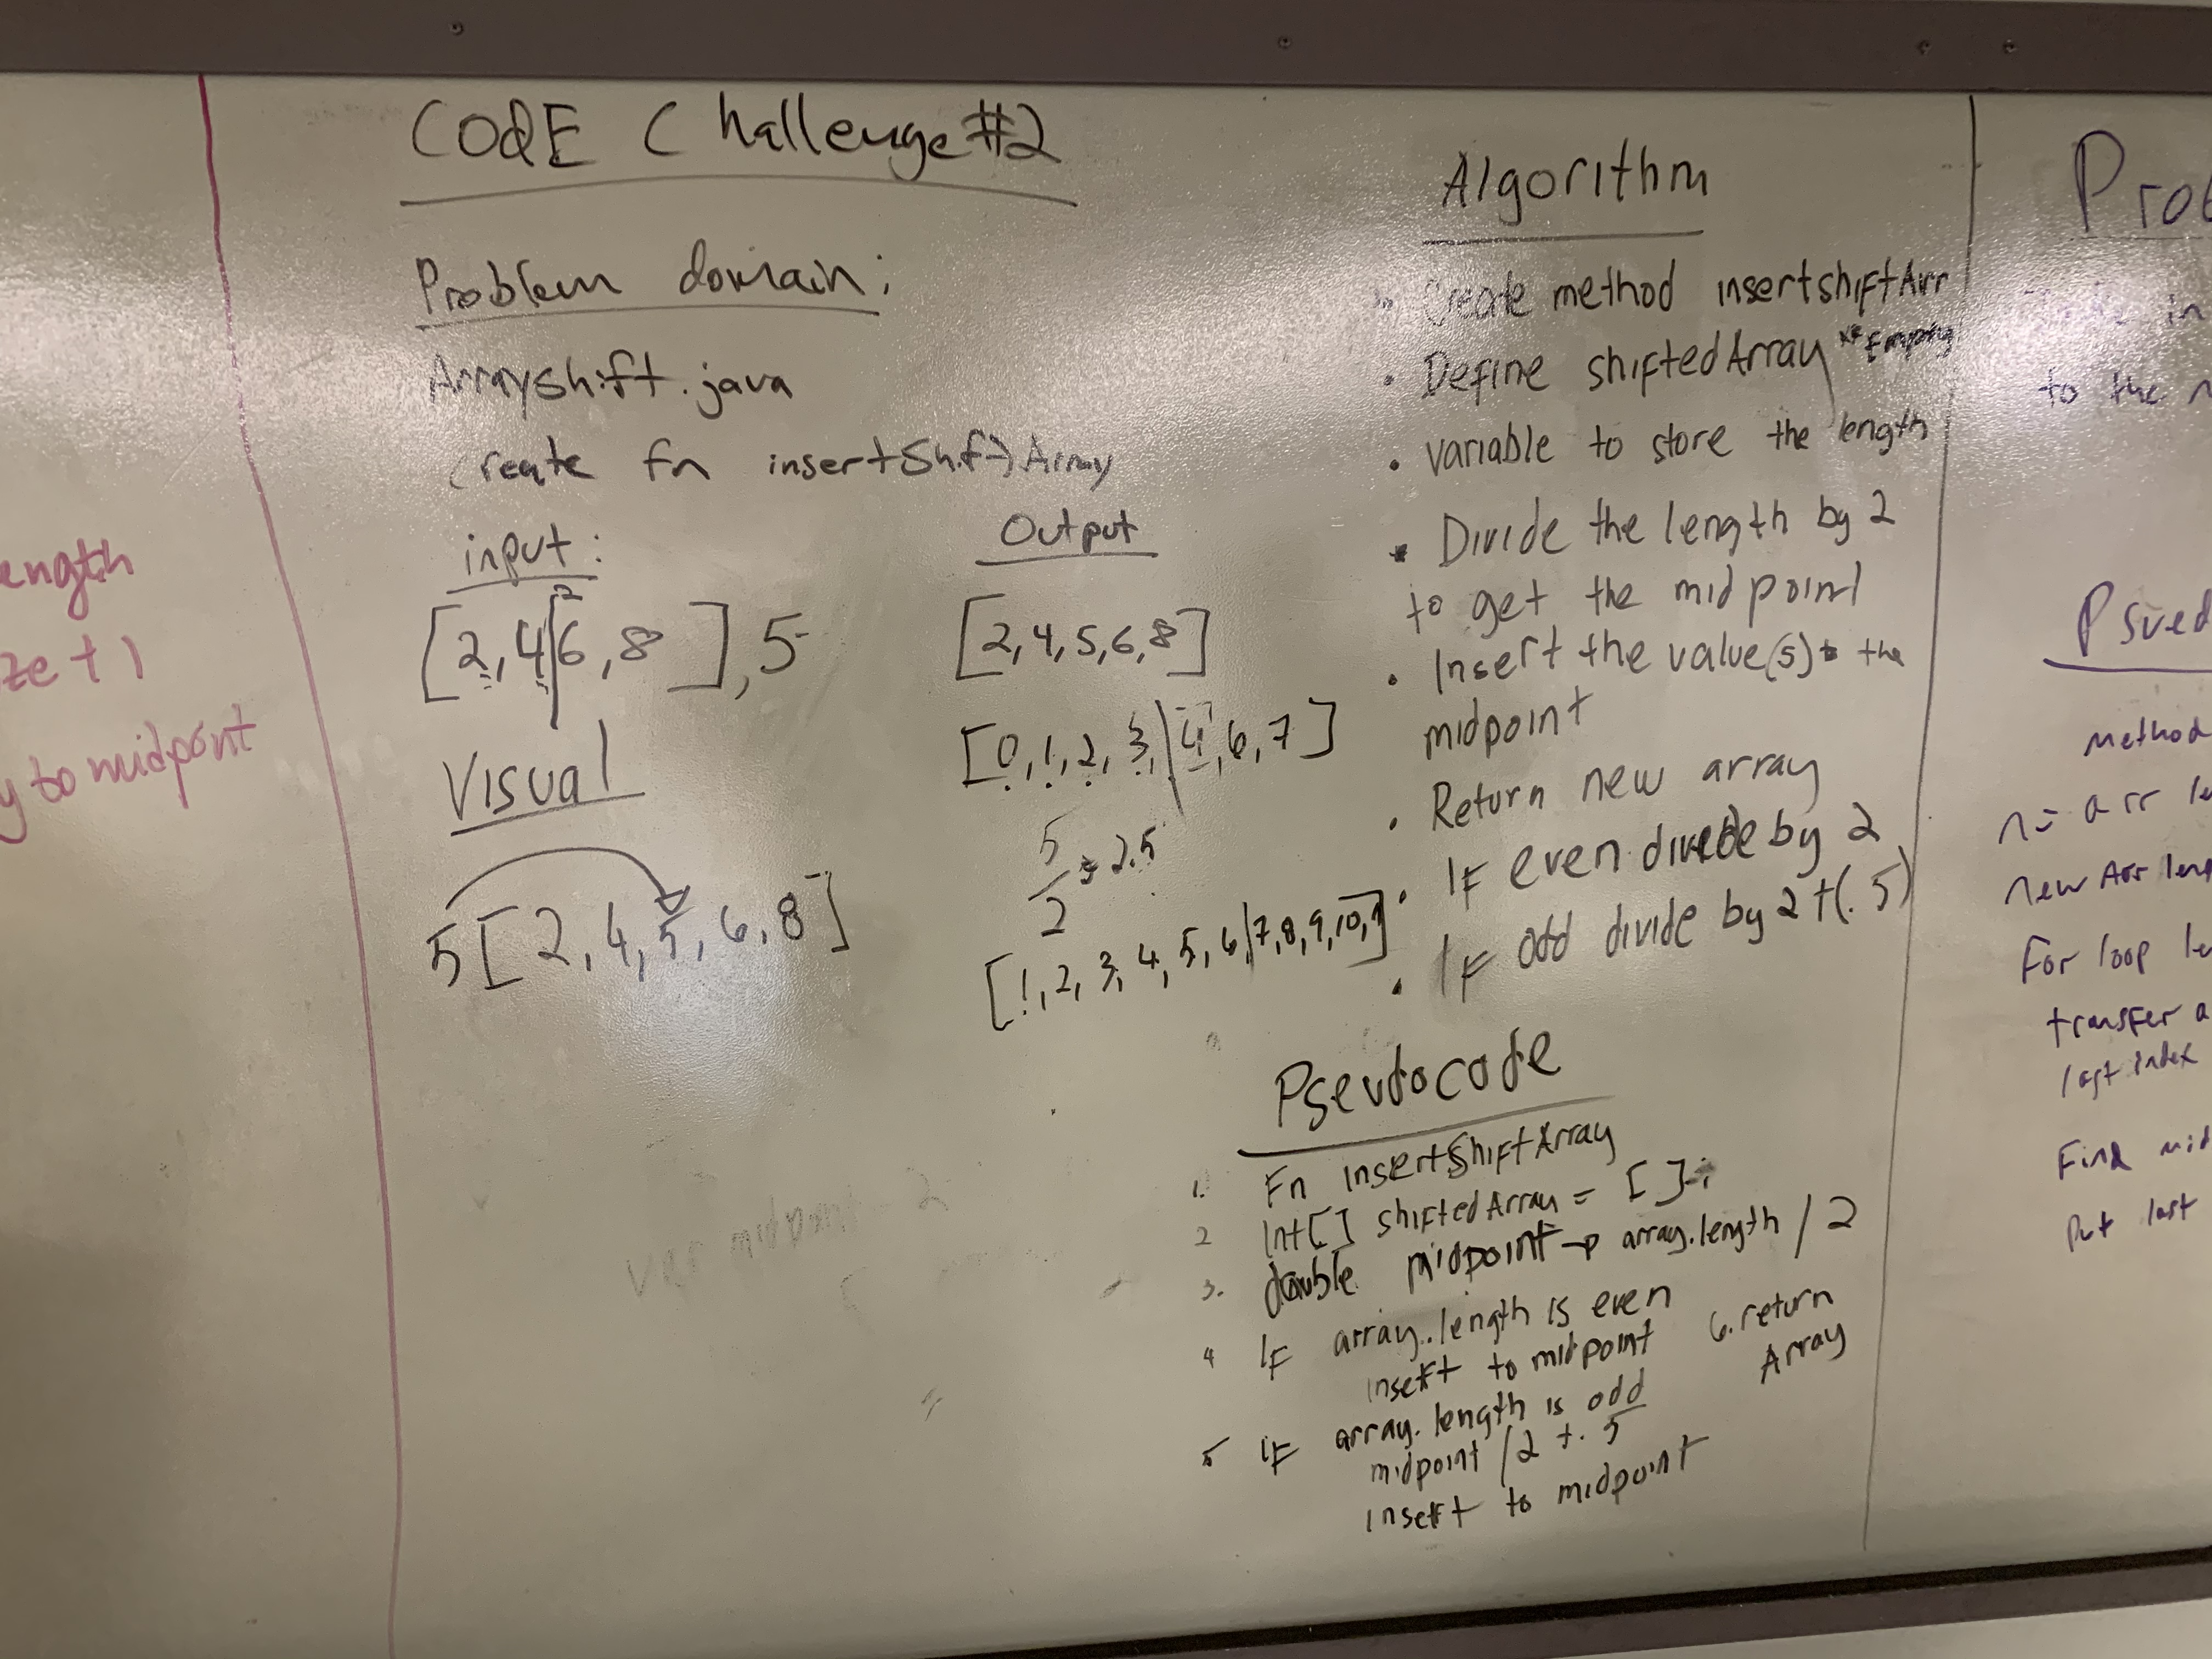 CODE Challenge #2
Problem domain:
Arrayshift.java
Create fn insertShiftArray
input:
[2,4|6,8],5
2
Visual
5[2,4,5,6,8]
Output
[2,4,5,6,8]
[0,1,2,3,|4,6,7]
5/2 = 2.5
[1,2,3,4,5,6|7,8,9,10,1]
Algorithm
Create method insertshiftArr
• Define shiftedArray ** Empty
• variable to store the length
• Divide the length by 2
to get the midpoint
• Insert the value(s) to the
midpoint
• Return new array
• IF even divide by 2
• IF odd divide by 2 +(.5)
Pseudocode
1. Fn InsertShiftArray
2 Int[] shiftedArray = [];
3. double midpoint → array.length / 2
4 IF array.length is even
insert to midpoint
5 if array.length is odd
midpoint /2 + .5
insert to midpoint
6. return
Array
ength
ze + 1
y to midpoint
Prob
in
to the n
Psued
method
n = arr le
new Arr leng
For loop le
transfer a
last index
Find mid
Put last